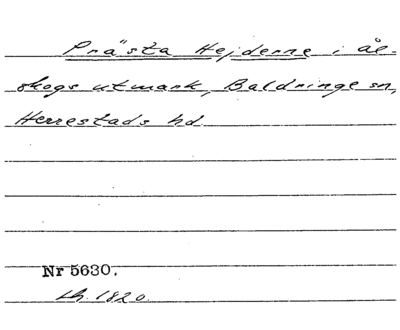 Prästa Hejderne i ål-
skogs utmark, Baldringe sn,
Herrestads hd
Nr 5630.
Lh. 1820.